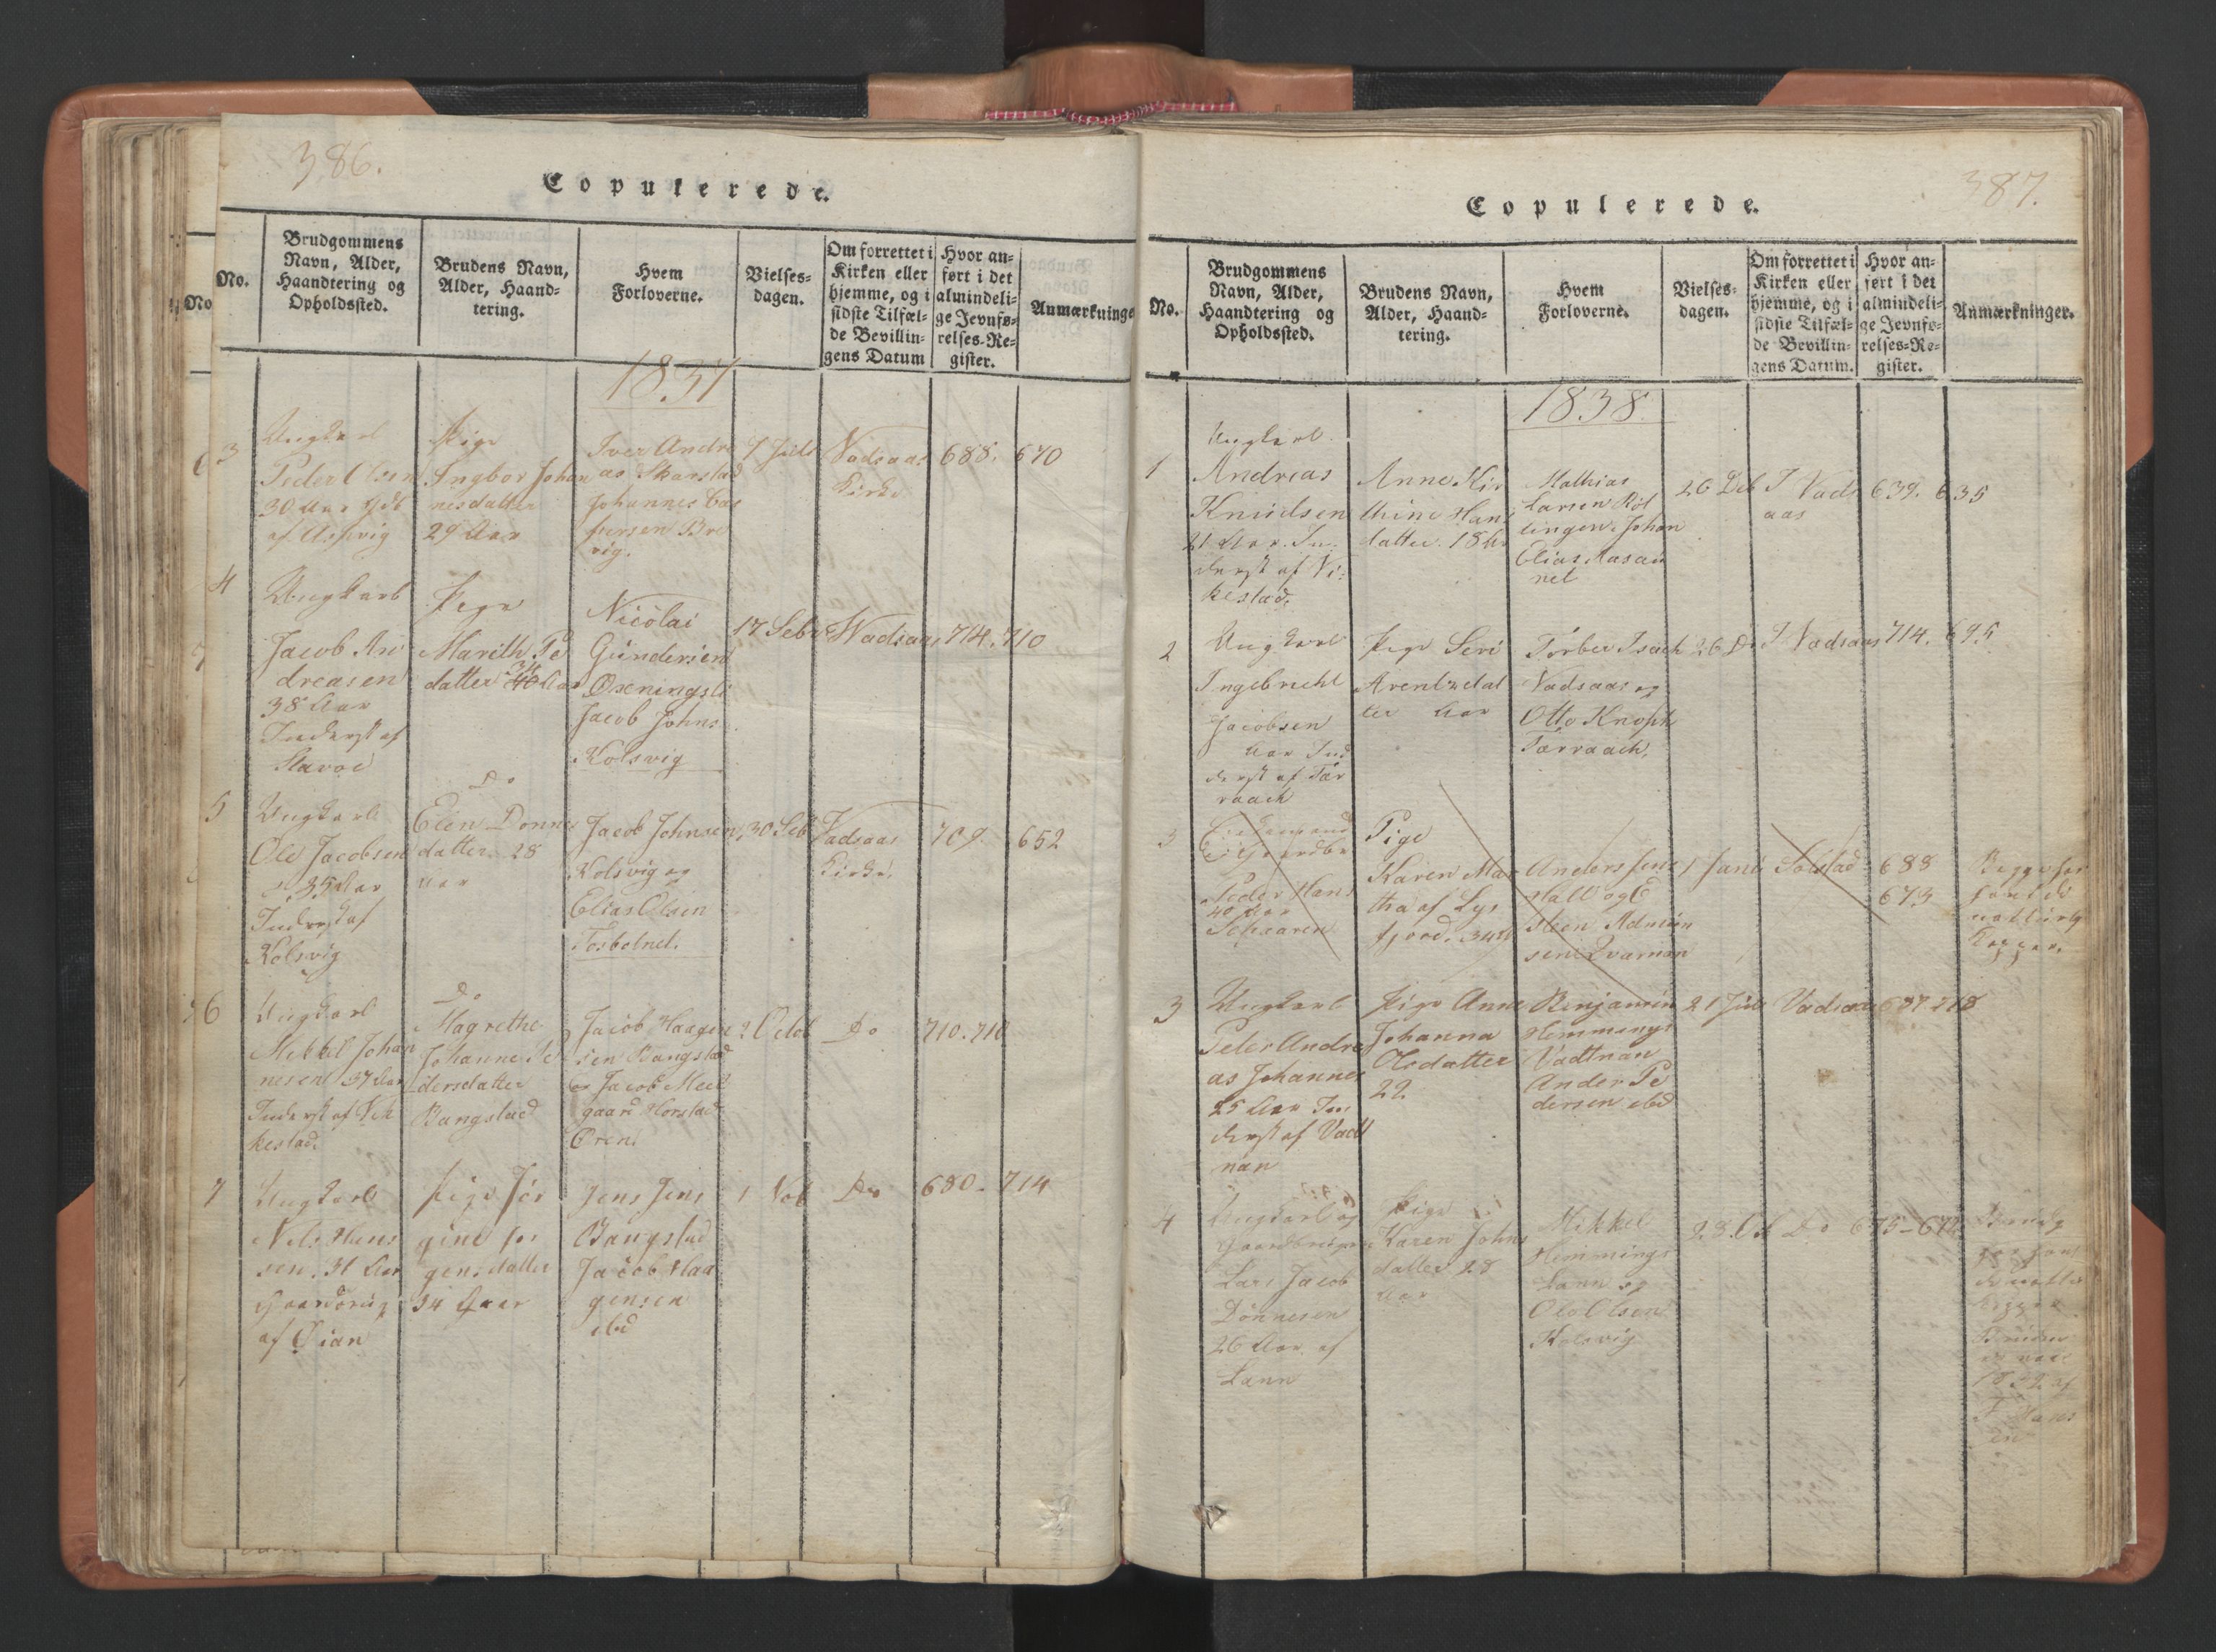 386.
Copulerede.
No.
Brudgommens
Navn, Alder,
Haandtering og
Opholdssted.
Brudens Navn,
Alder, Haand-
tering.
Hvem
Forloverne.
Vielses-
dagen.
Om forrettet i
Kirken eller
hjemme, og i
sidste Tilfæl-
de Bevillin-
gens Datum
Hvor an-
ført i det
almindeli-
ge Jevnfø-
relses-Re-
gister.
Anmærkninge
1837
3
Ungkarl
Peder Olsen
30 Aar
af
Pige
Ingbor Johan
nesdatter
29 Aar
Iver Andre
as Skarstad
Johannes Cas
persen Bre
vig.
7 Juli
Vadsaas
Kirke
688. 670
4
Ungkarl
Jacob An
dreasen
38 Aar
Inderst af
Pige
Marith Pe
datter 34 Aar
Nicolai
Gundersen
Jacob Johns
Kolsvig
17 Sebr
Wadsaas
714. 710
5
Ungkarl
Ole Jacobsen
35 Aar
Inderst af
Kolsvig
Do
Elen Dönne
datter 28
Aar
Jacob Johnsen
Kolsvig og
Elias Olsen
Tosbotnet.
30 Seb
Vadsaas
Kirke
709. 652
6
Ungkarl
Mikkel Johan
nesen 37 Aar
Inderst af Vik
kestad.
Do
Magrethe
Johanne Pe
dersdatter
Bangstad
Jacob Haagen
sen Bangstad
og Jacob
gaard Horstad
Ören
2 Octob
Do
710. 710
7
Ungkarl
Nils Hans
sen. 31 Aar
Gaardbrug
af
Pige Jör
gine Jör
gensdatter
34 Aar
Jens Jens
Bangstad
Jacob Haa
gensen
ibd
1 Nob
Do
680. 714
387.
Copulerede.
No.
Brudgommens
Navn, Alder,
Haandtering og
Opholdssted.
Brudens Navn,
Alder, Haand-
tering.
Hvem
Forloverne.
Vielses-
dagen.
Om forrettet i
Kirken eller
hjemme, og i
sidste Tilfæl-
de Bevillin-
gens Datum.
Hvor an-
ført i det
almindeli-
ge Jevnfø-
relses-Re-
gister.
Anmærkninger.
1838.
1
Ungkarl
Andreas
Knudsen
21 Aar. In-
derst af Vi-
kestad.
Anne Kir
stine Hans
datter. 18 Aar
Mathias
Larsen Röl
lingen. Johan
Elias Aasau
net
26 Deb
I Vads
aas
639. 635
2
Ungkarl
Ingebricht
Jacobsen
Aar In
derst af Tær
raack
Pige Seri
Arentzdat
ter Aar
Torber Isach
Vadsaas og
Otto Knoph
Tærraack.
26 Do
I Vadsaas
714. 695
3
Peder Hans
40 Aar
Pige
Karen Mar
tha af Lys
fjord. 34
Anders Jens
Hall og
Steen
1 Juni
Solstad
688
673
Begge har
havt de
naturlig
Kopper.
3
Ungkarl
Peter Andre
as Johannes
25 Aar In
derst af Vadt
nan
Pige Anne
Johanna
Olsdatter
22
Benjamin
Hemmings
Vadtnan
Ander Pe
dersen ibd
21 Juli
Vadsaas
4
Ungkarl og
Gaardbruger
Lars Jacob
Dönnesen
26 Aar. af
Lann
Pige
Karen Johns
datter 28
Aar
Mikkel
Hemmings
Lann og
Ole Olsen
Kolsvig
Do
af